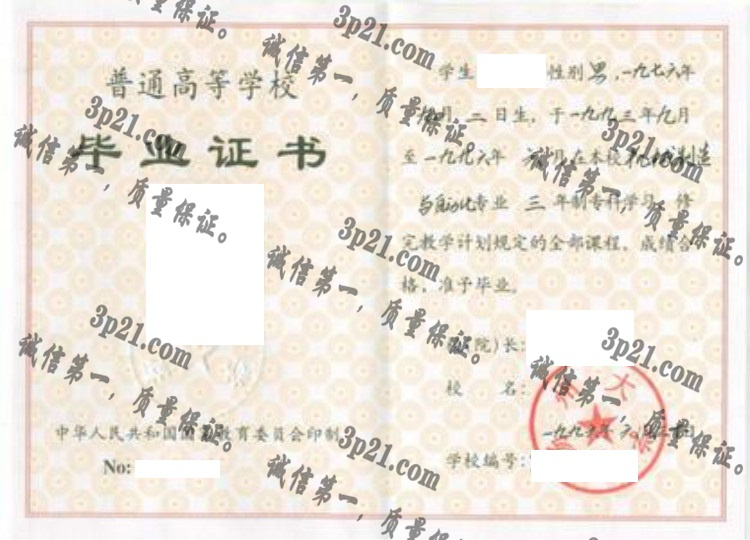 普通高等学校
毕业证书
中华人民共和国国家教育委员会印制
No:
学生 性别男,一九七六年
月 二日生,于一九九三年九月
至一九九六年 月在本校机械制造
与自动化专业 三年制专科学习,修
完教学计划规定的全部课程,成绩合
格,准予毕业。
校(院)长:
校 名:
一九九六年六月 日
学校编号:
大
3p21.com
诚信第一,质量保证。
3p21.com
诚信第一,质量保证。
3p21.com
诚信第一,质量保证。
3p21.com
诚信第一,质量保证。
3p21.com
诚信第一,质量保证。
3p21.com
诚信第一,质量保证。
3p21.com
诚信第一,质量保证。